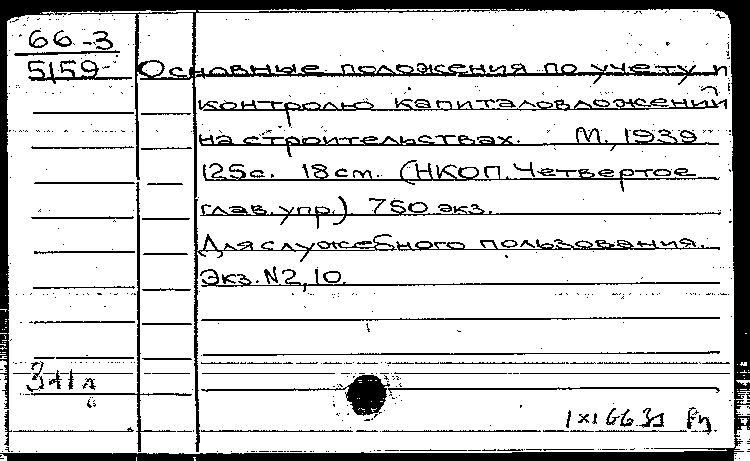 66-3
5159 Основные положения по учету и
контролю капиталовложений
на строительствах. М., 1939
125с. 18см. (НКОП. Четвертое
глав. упр.) 750 экз.
Для служебного пользования.
Экз. N2, 10.